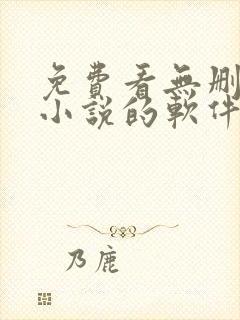 免費看無刪
小說的軟件
乃鹿